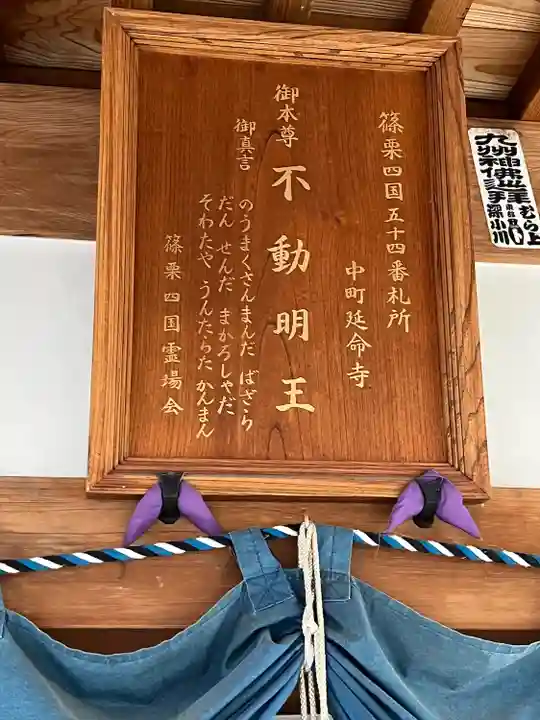 篠栗四国五十四番札所
中町延命寺
御本尊 不動明王
御真言 のうまくさんまんだ ばざら
だん せんだ まかろしゃだ
そわたや うんたらた かんまん
篠栗四国霊場会
九州神佛巡拝
むら上
深小川